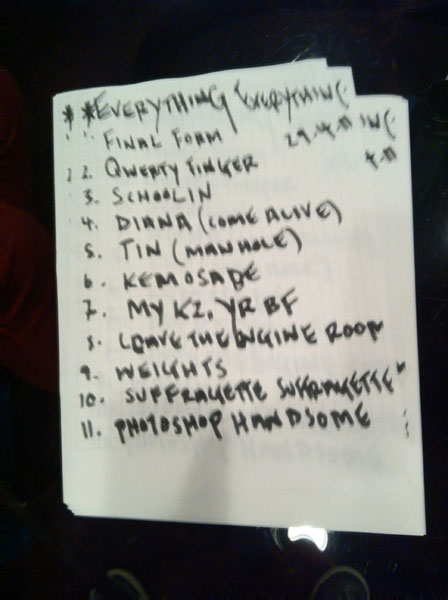 * *EVERYTHING EVERYTHING
29.4.11
1. FINAL FORM
2. QWERTY FINGER
3. SCHOOLIN
4. DIANA (COME ALIVE)
5. TIN (MANHOLE)
6. KEMOSABE
7. MY KZ, YR BF
8. LEAVE THE ENGINE ROOM
9. WEIGHTS
10. SUFFRAGETTE SUFFRAGETTE
11. PHOTOSHOP HANDSOME